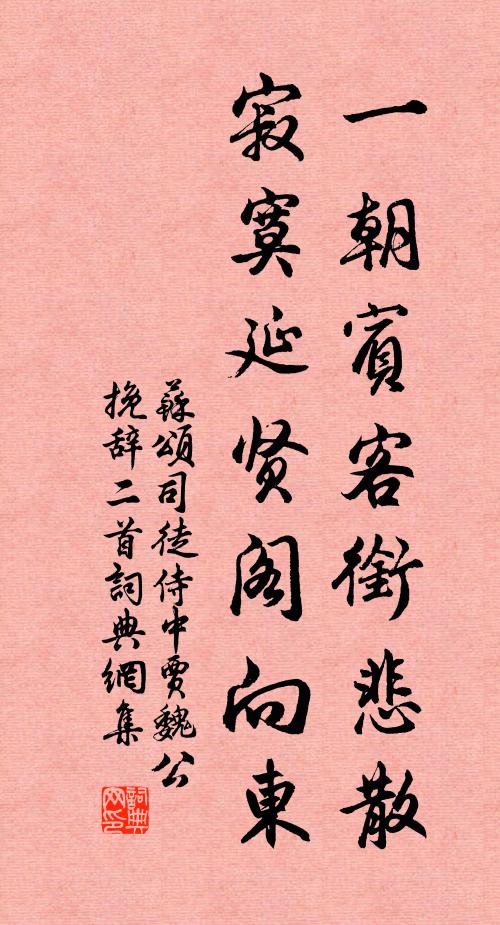 一朝賓客銜悲散
寂寞延贤阁向東
蘇頌司徒侍中賈魏公
挽辞二首詞典網集
詞典网印